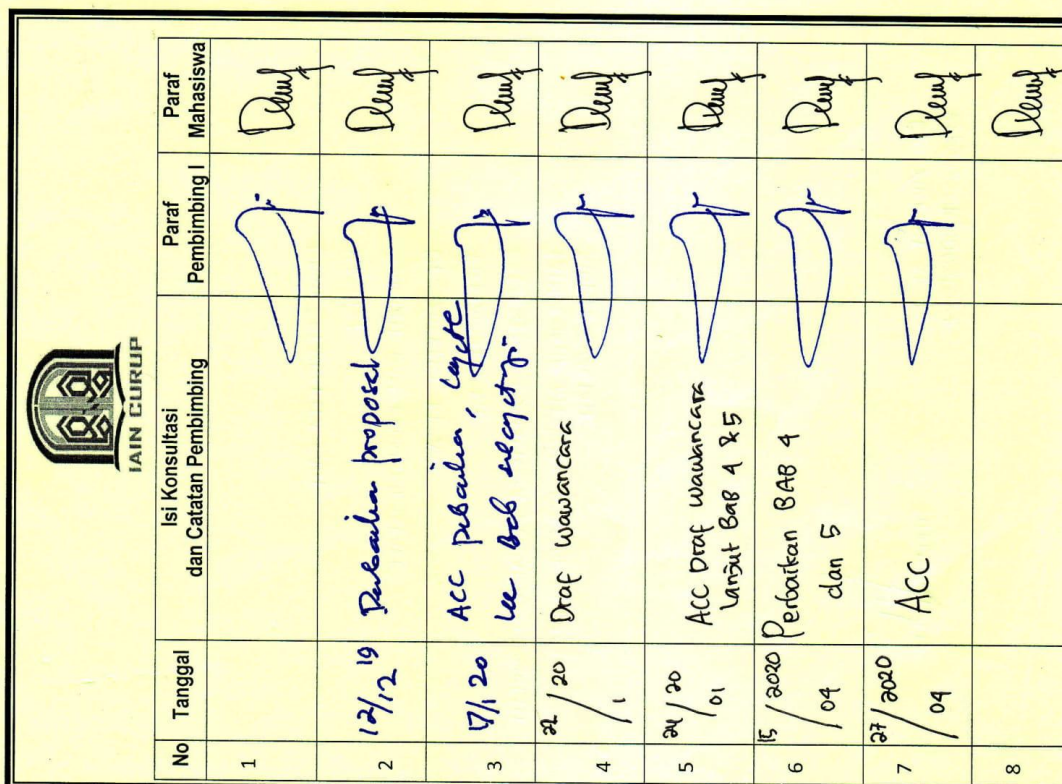 IAIN CURUP
No
Tanggal
Isi Konsultasi
dan Catatan Pembimbing
Paraf
Pembimbing I
Paraf
Mahasiswa
1
2
12/12 19
Perbaikan proposal
3
17/1 20
ACC perbaikan, lanjut
ke Bab selanjutnya
4
22/20
1
Draf Wawancara
5
24/20
01
ACC Draf Wawancara
Lanjut BAB 4 & 5
6
15/2020
04
Perbaikan BAB 4
dan 5
7
27/2020
04
ACC
8